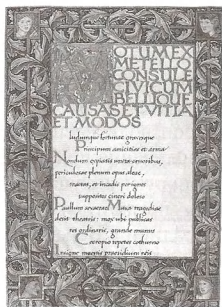 OTUM EX
METELLO
CONSULE
CIVICUM
BELLIQUE
CAUSAS ET VITIA
ET MODOS
ludumque fortunae gravesque
Principum amicitias et arma
Nondum expiatis uncta cruoribus,
periculosae plenum opus aleae,
tractas, et incedis per ignes
suppositos cineri doloso
Paullum severae Musa tragoediae
desit theatris: mox ubi publicas
res ordinaris, grande munus
Cecropio repetes cothurno
Insigne maestis praesidium reis